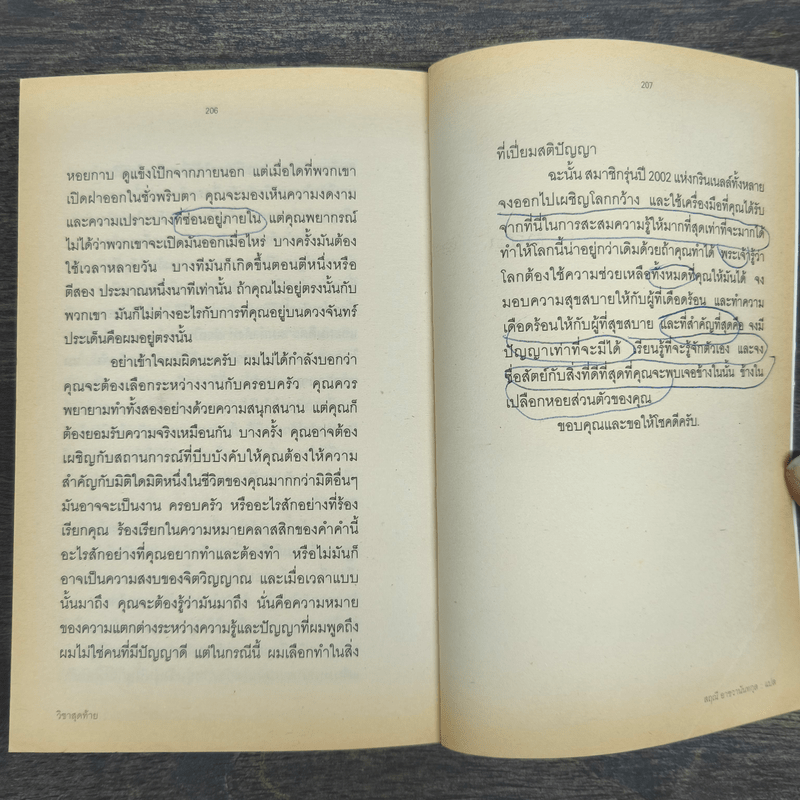 206
หอยกาบ ดูแข็งโป๊กจากภายนอก แต่เมื่อใดที่พวกเขา
เปิดฝาออกในชั่วพริบตา คุณจะมองเห็นความงดงาม
และความเปราะบางที่ซ่อนอยู่ภายใน แต่คุณพยากรณ์
ไม่ได้ว่าพวกเขาจะเปิดมันออกเมื่อไหร่ บางครั้งมันต้อง
ใช้เวลาหลายวัน บางทีมันก็เกิดขึ้นตอนตีหนึ่งหรือ
ตีสอง ประมาณหนึ่งนาทีเท่านั้น ถ้าคุณไม่อยู่ตรงนั้นกับ
พวกเขา มันก็ไม่ต่างอะไรกับการที่คุณอยู่บนดวงจันทร์
ประเด็นคือผมอยู่ตรงนั้น
อย่าเข้าใจผมผิดนะครับ ผมไม่ได้กำลังบอกว่า
คุณจะต้องเลือกระหว่างงานกับครอบครัว คุณควร
พยายามทำทั้งสองอย่างด้วยความสนุกสนาน แต่คุณก็
ต้องยอมรับความจริงเหมือนกัน บางครั้ง คุณอาจต้อง
เผชิญกับสถานการณ์ที่บีบบังคับให้คุณต้องให้ความ
สำคัญกับมิติใดมิติหนึ่งในชีวิตของคุณมากกว่ามิติอื่นๆ
มันอาจจะเป็นงาน ครอบครัว หรืออะไรสักอย่างที่ร้อง
เรียกคุณ ร้องเรียกในความหมายคลาสสิกของคำคำนี้
อะไรสักอย่างที่คุณอยากทำและต้องทำ หรือไม่มันก็
อาจเป็นความสงบของจิตวิญญาณ และเมื่อเวลาแบบ
นั้นมาถึง คุณจะต้องรู้ว่ามันมาถึง นั่นคือความหมาย
ของความแตกต่างระหว่างความรู้และปัญญาที่ผมพูดถึง
ผมไม่ใช่คนที่มีปัญญาดี แต่ในกรณีนี้ ผมเลือกทำในสิ่ง
วิชาสุดท้าย
207
ที่เปี่ยมสติปัญญา
ฉะนั้น สมาชิกรุ่นปี 2002 แห่งกรินเนลล์ทั้งหลาย
จงออกไปเผชิญโลกกว้าง และใช้เครื่องมือที่คุณได้รับ
จากที่นี่ในการสะสมความรู้ให้มากที่สุดเท่าที่จะมากได้
ทำให้โลกนี้น่าอยู่กว่าเดิมด้วยถ้าคุณทำได้ พระเจ้ารู้ว่า
โลกต้องใช้ความช่วยเหลือทั้งหมดที่คุณให้มันได้ จง
มอบความสุขสบายให้กับผู้ที่เดือดร้อน และทำความ
เดือดร้อนให้กับผู้ที่สุขสบาย และที่สำคัญที่สุดคือ จงมี
ปัญญาเท่าที่จะมีได้ เรียนรู้ที่จะรู้จักตัวเอง และจง
ซื่อสัตย์กับสิ่งที่ดีที่สุดที่คุณจะพบเจอข้างในนั้น ข้างใน
เปลือกหอยส่วนตัวของคุณ
ขอบคุณและขอให้โชคดีครับ.
สฤณี อาชวานันทกุล แปล